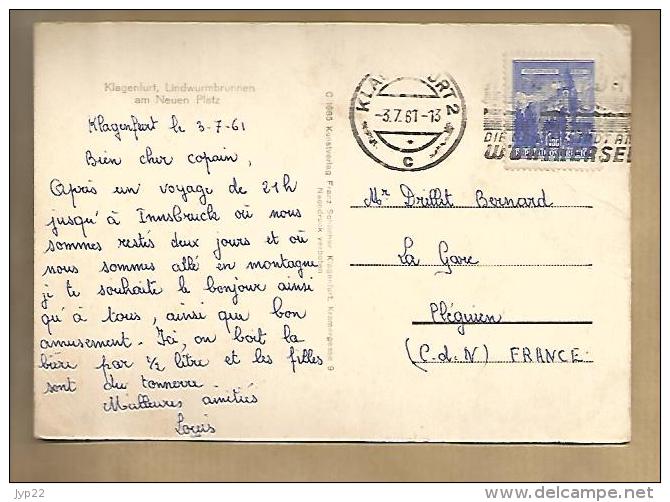 Klagenfurt, Lindwurmbrunnen
am Neuen Platz
Klagenfurt le 3-7-61
Bien cher copain,
Après un voyage de 21h
jusqu'à Innsbruck où nous
sommes restés deux jours et où
nous sommes allé en montagne
je te souhaite le bonjour ainsi
qu'à tous, ainsi que bon
amusement. Ici, on boit la
bière par 1/2 litre et les filles
sont du tonnerre.
Meilleures amitiés
Louis
C 1665 Kunstverlag Franz Schilcher Klagenfurt, Kramergasse 9
Nachdruck verboten
KLAGENFURT 2
-3.7.61-13
C
DIE
WÖRTHERSEE
Mr Drillet Bernard
La Gare
Pléguien
(C-d-N) FRANCE
jyp22
delcampe.net